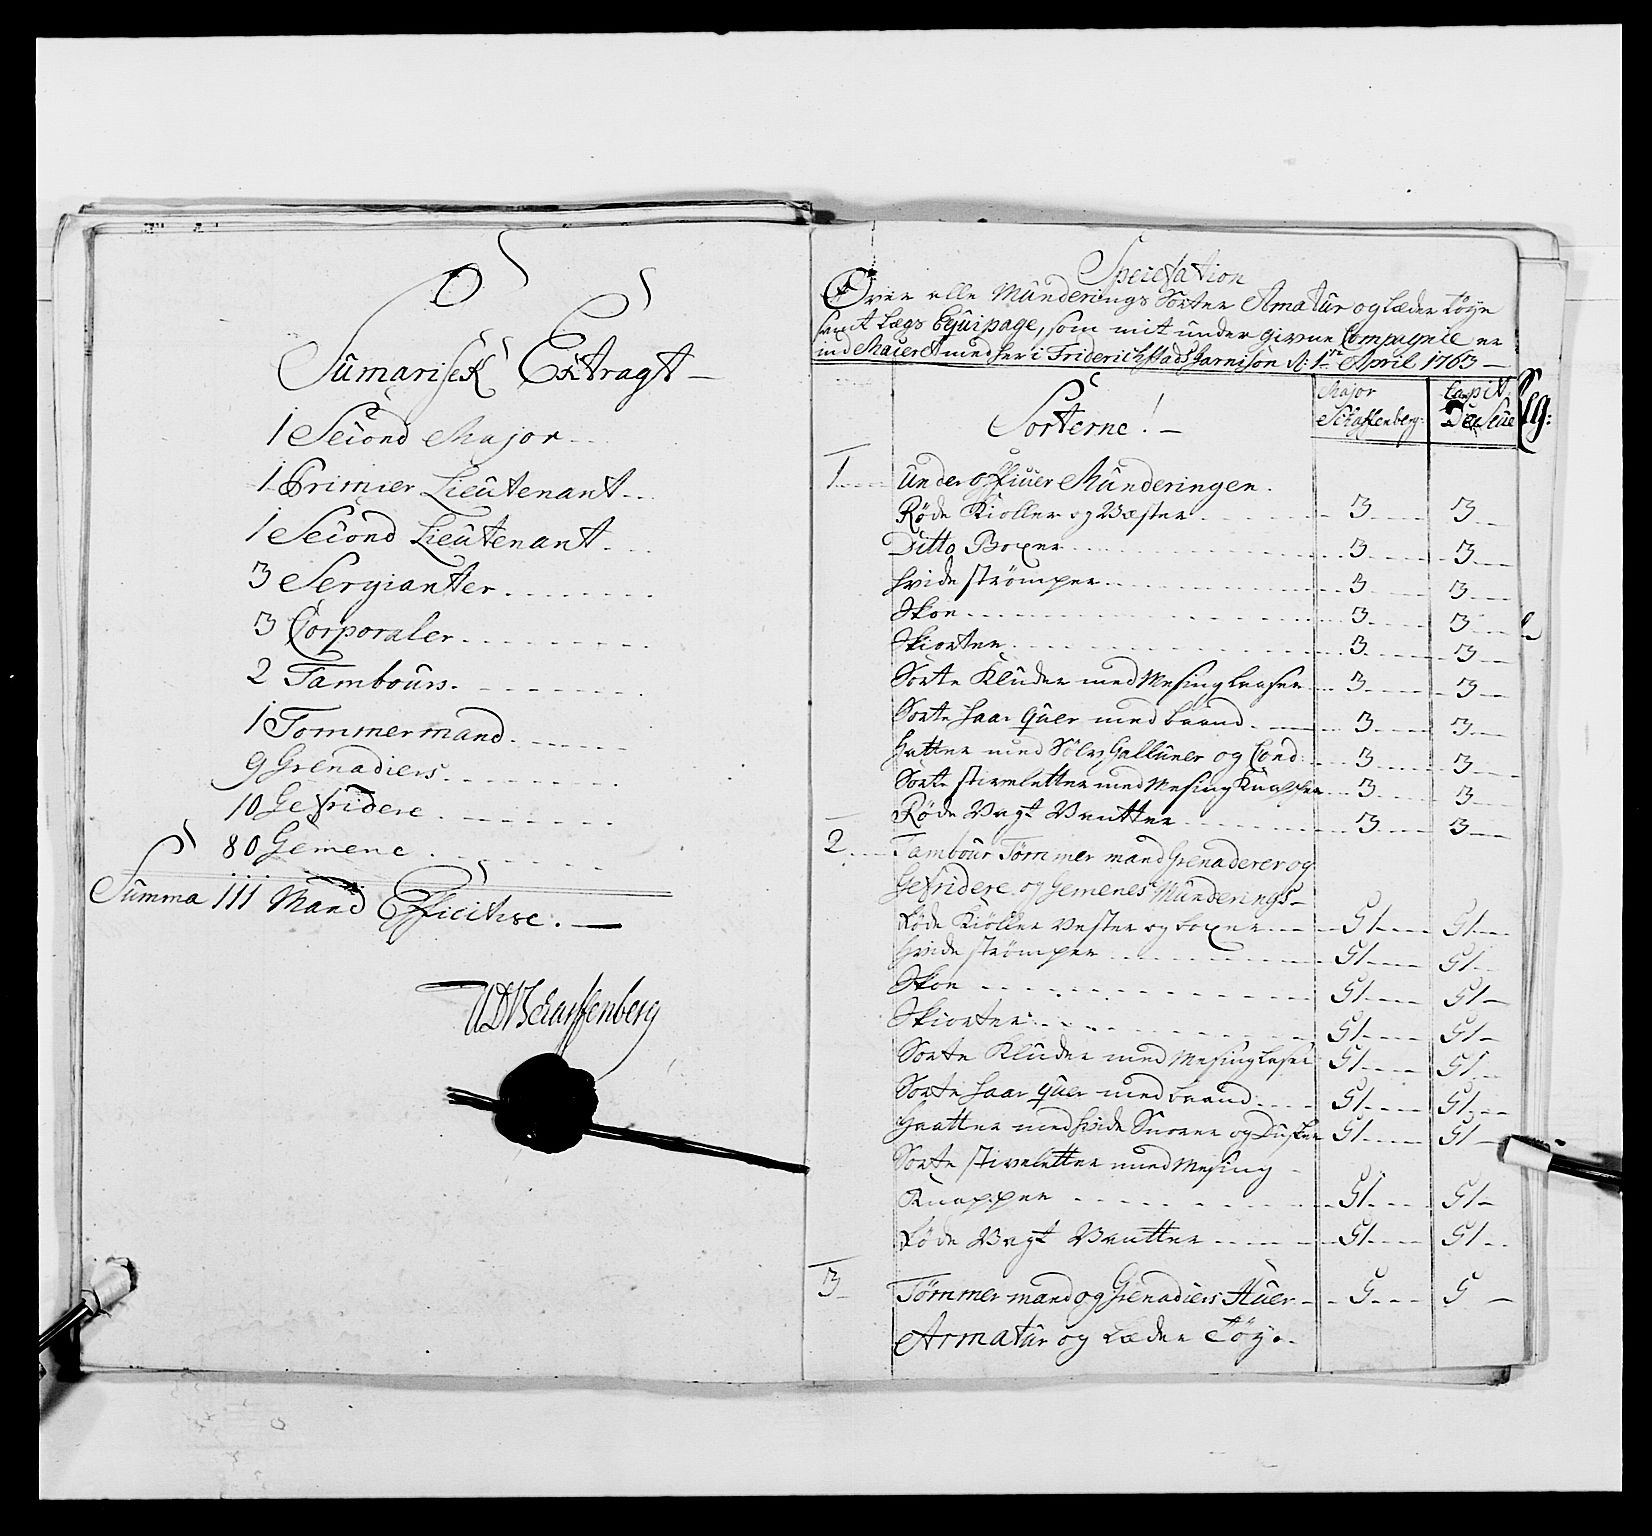 Sûmarisck Extragt
1 Second Major
1 Primier Lieûtenant
1 Second Lieûtenant
3 Sergianter
3 Corporaler
2 Tambours
1 Tømmermand
9 Grenadiers
10 Gefridere
80 Gemene
Sûmma 111 Mand Effictive.
UDVScharffenberg
Specification
Over alle Mûnderings Sorter Amatûr og Læder Tøye
samt Lægs Eqûipage, som mit ûnder givne Compagnie er
med her i Friderichstads Garnison d: 1te April 1763
Sorterne!
Major
Scharffenberg
Capit
1 Ûnder officier Mûnderingen.
Røde Kioller og Væster 3 3
Ditto Boxer 3 3
hvide strømper 3 3
Skoe 3 3
Skiorter 3 3
Sorte Klûder med Mesing Laaser 3 3
Sorte Haar qûer med baand 3 3
Hatter med Sølv Gallûner og Cond: 3 3
Sorte stiveletter med Mesing Knapper 3 3
Røde Vagt Vanter 3 3
2 Tambour Tømmer mand Grenaderer og
Gefridere og Gemenes Mûnderings
Røde Kiøller Vester og boxer 51 51
hvide strømper 51 51
Skoe 51 51
Skiorter 51 51
Sorte Klûder med Mesing Laser 51 51
Sorte Haar qûer med baand 51 51
Haatter med hvide Snorer og Dûsker 51 51
Sorte stiveletter med Mesing
Knapper 51 51
Røde Vagt Vantter 51 51
3 Tømmer mand og Grenadiers Hûer 5 5
Armatûr og Læder Tøye.